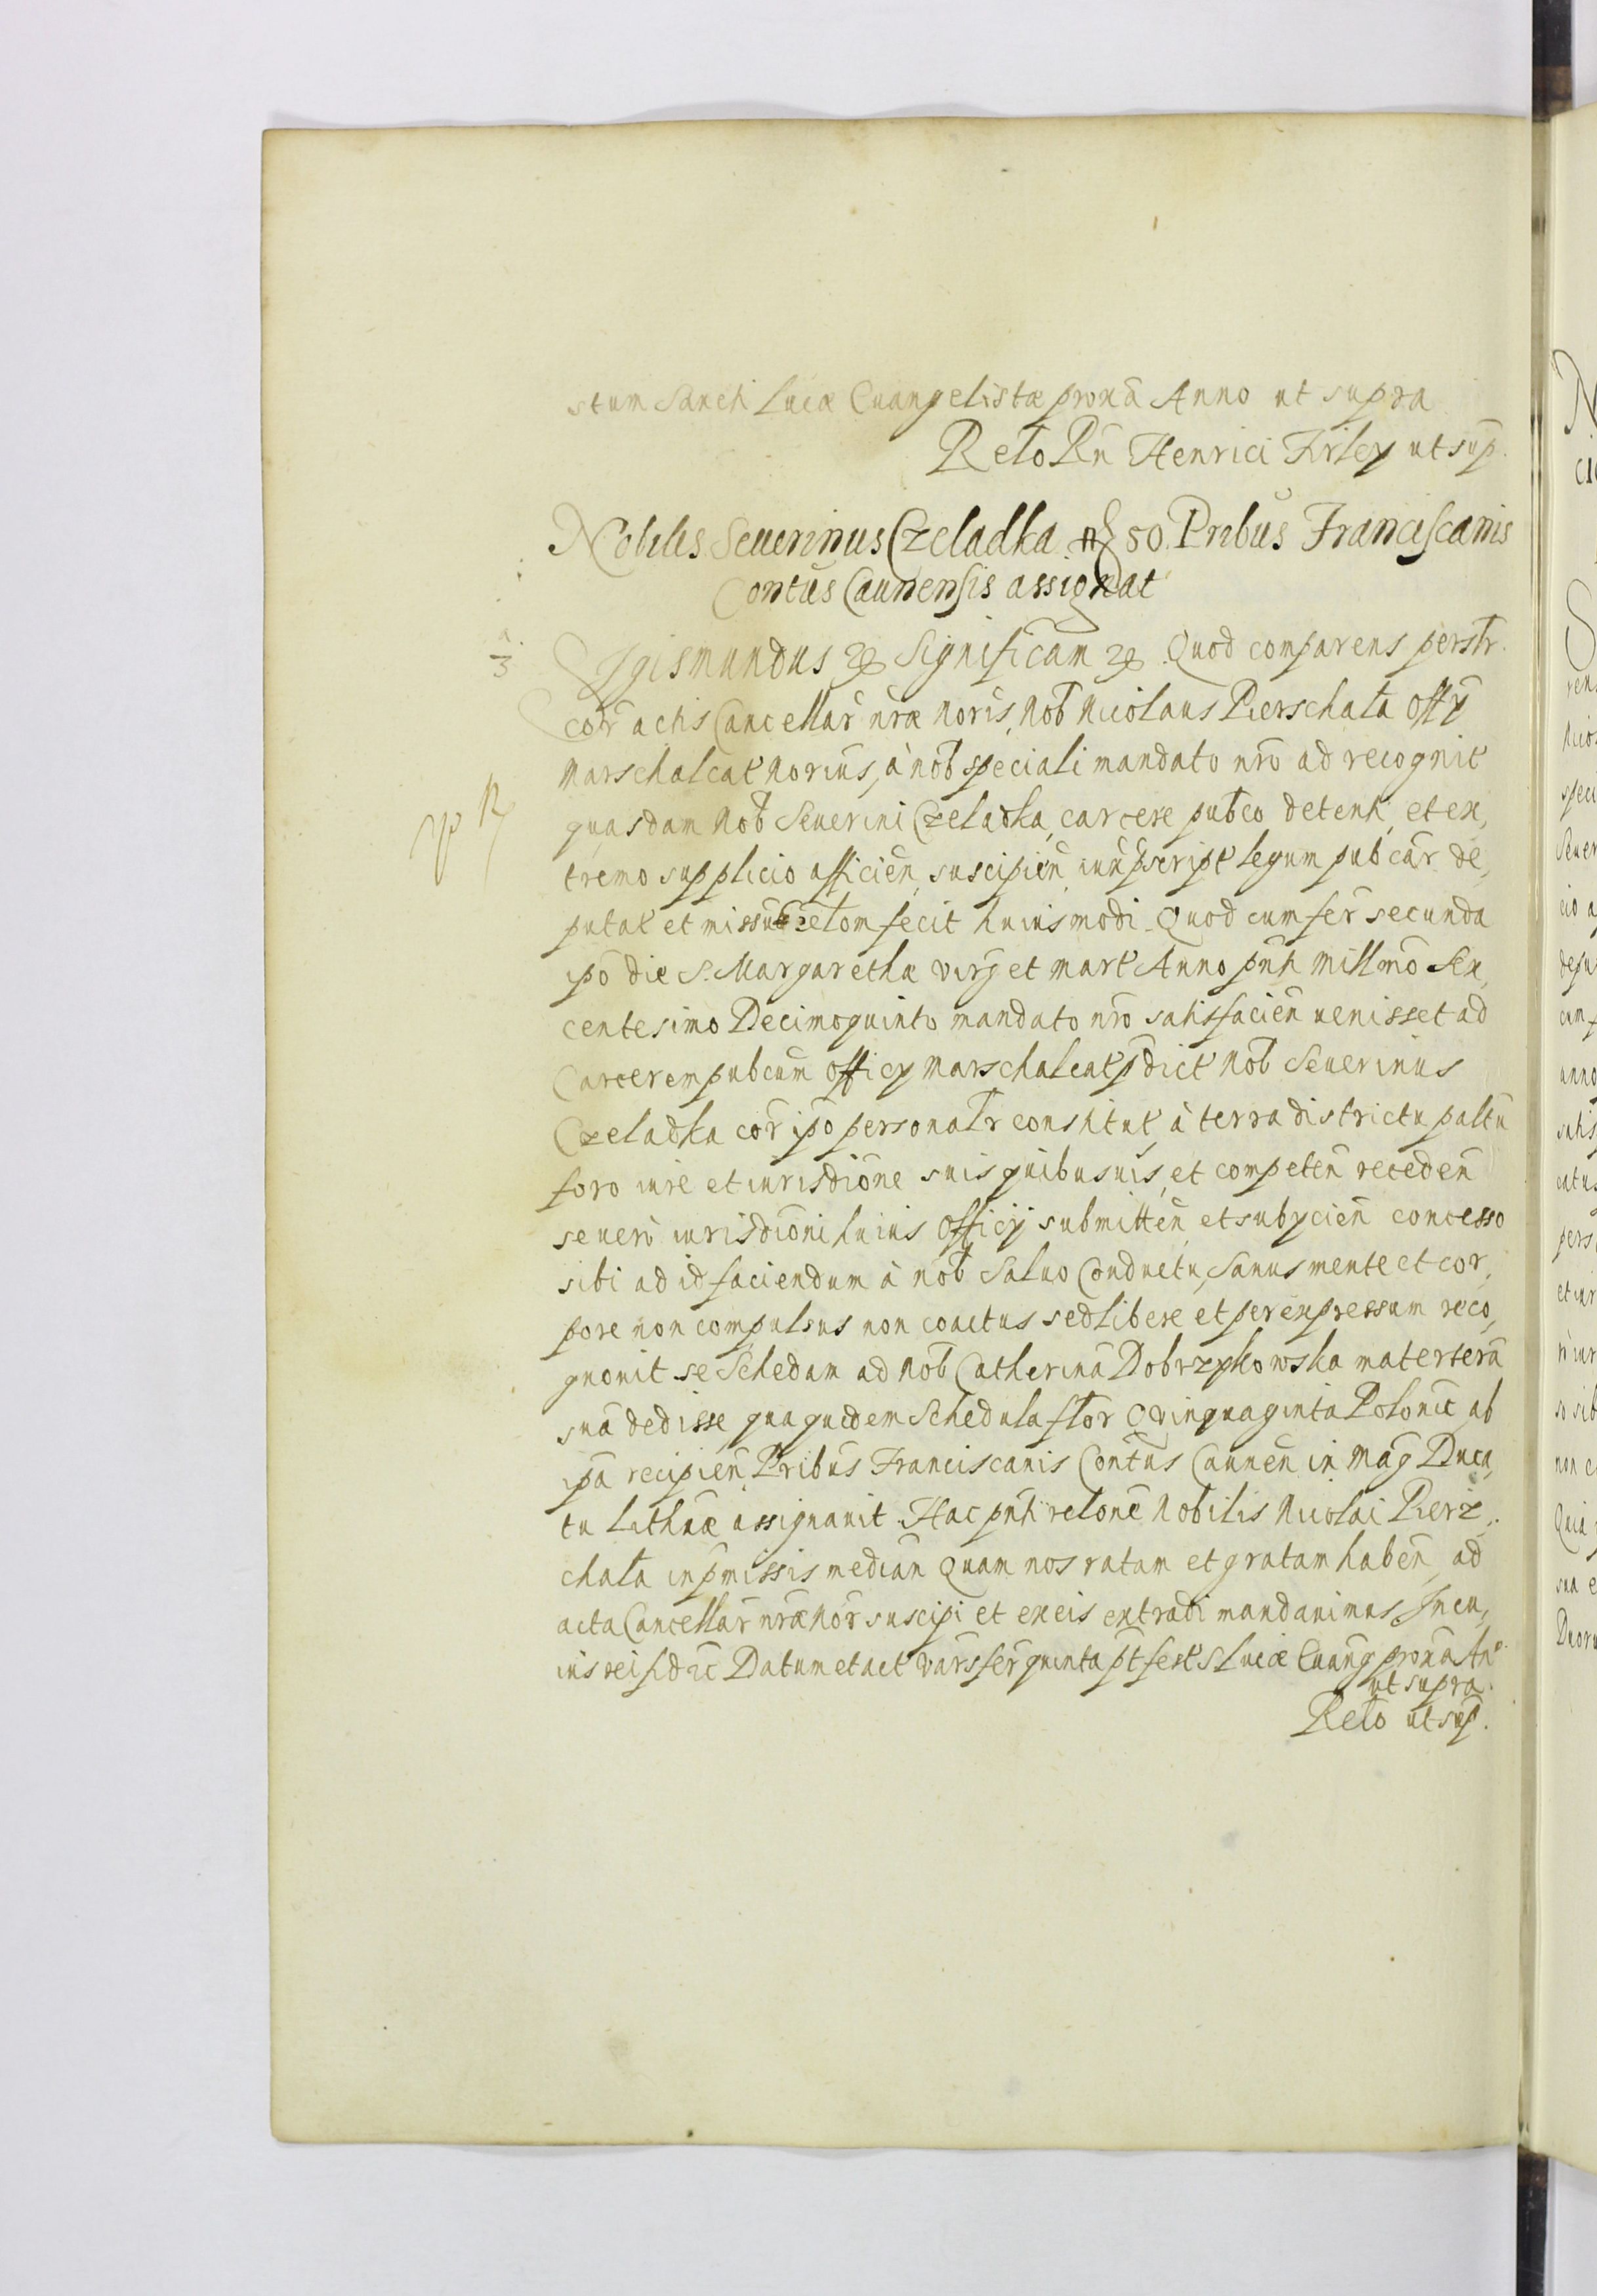 stum Sancti Lucæ Euangelistæ proxã Anno ut supra
Relo Rñ Henrici Firley ut sup.
Nobilis Seuerinus Czeladka fl 50 Pribus Franciscanis
Contus Caunensis assignat
Sigismundus &c Significam &c Quod comparens perstr.
cor actis Cancellar nræ Noris, Nob Nicolaus Pierschala Offÿ
Marschalcat Norius, à nob speciali mandato nro ad recognit
quasdam Nob Seuerini Czeladka, carcere pubco detent, et ex,
tremo supplicio afficien, suscipien iux pscript legum pub car de,
putat et missus relom fecit huiusmodi. Quod cum fer secunda
ipo die S. Margarethæ virg et mart Anno pnti Millmo Sex,
centesimo Decimoquinto mandato nro satisfacien uenisset ad
Carcerem pubcum Officy Marschalcat pdict Nob Seuerinus
Czeladka cor ipo personalr constitut, à terra districtu paltu
foro iure et iurisdione suis quibusuis, et competen receden
se uero iurisdioni huius Officij submitten, et subycien concesso
sibi ad id faciendum à nob Saluo Conductu, Sanus mente et cor,
pore non compulsus non coactus sed libere et per expressum reco,
gnouit se Schedam ad Nob Catherinã Dobrzykowska materterã
suã dedisse qua quidem Schedula flor Quinquaginta Polonic ab
ipa recipien Pribus Franciscanis Contus Caunen in Mag Duca,
tu Lithnæ assignauit. Hac pnti relone Nobilis Nicolai Pierz,
chala in pmissis median Quam nos ratam et gratam haben, ad
acta Cancellar nræ Nor suscipi et ex eis extradi mandauimus. In cu,
ius rei fid &c Datum et act Vars fer quinta pt fest S Lucæ Euang proxa Ano
ut supra.
Relo ut sup.